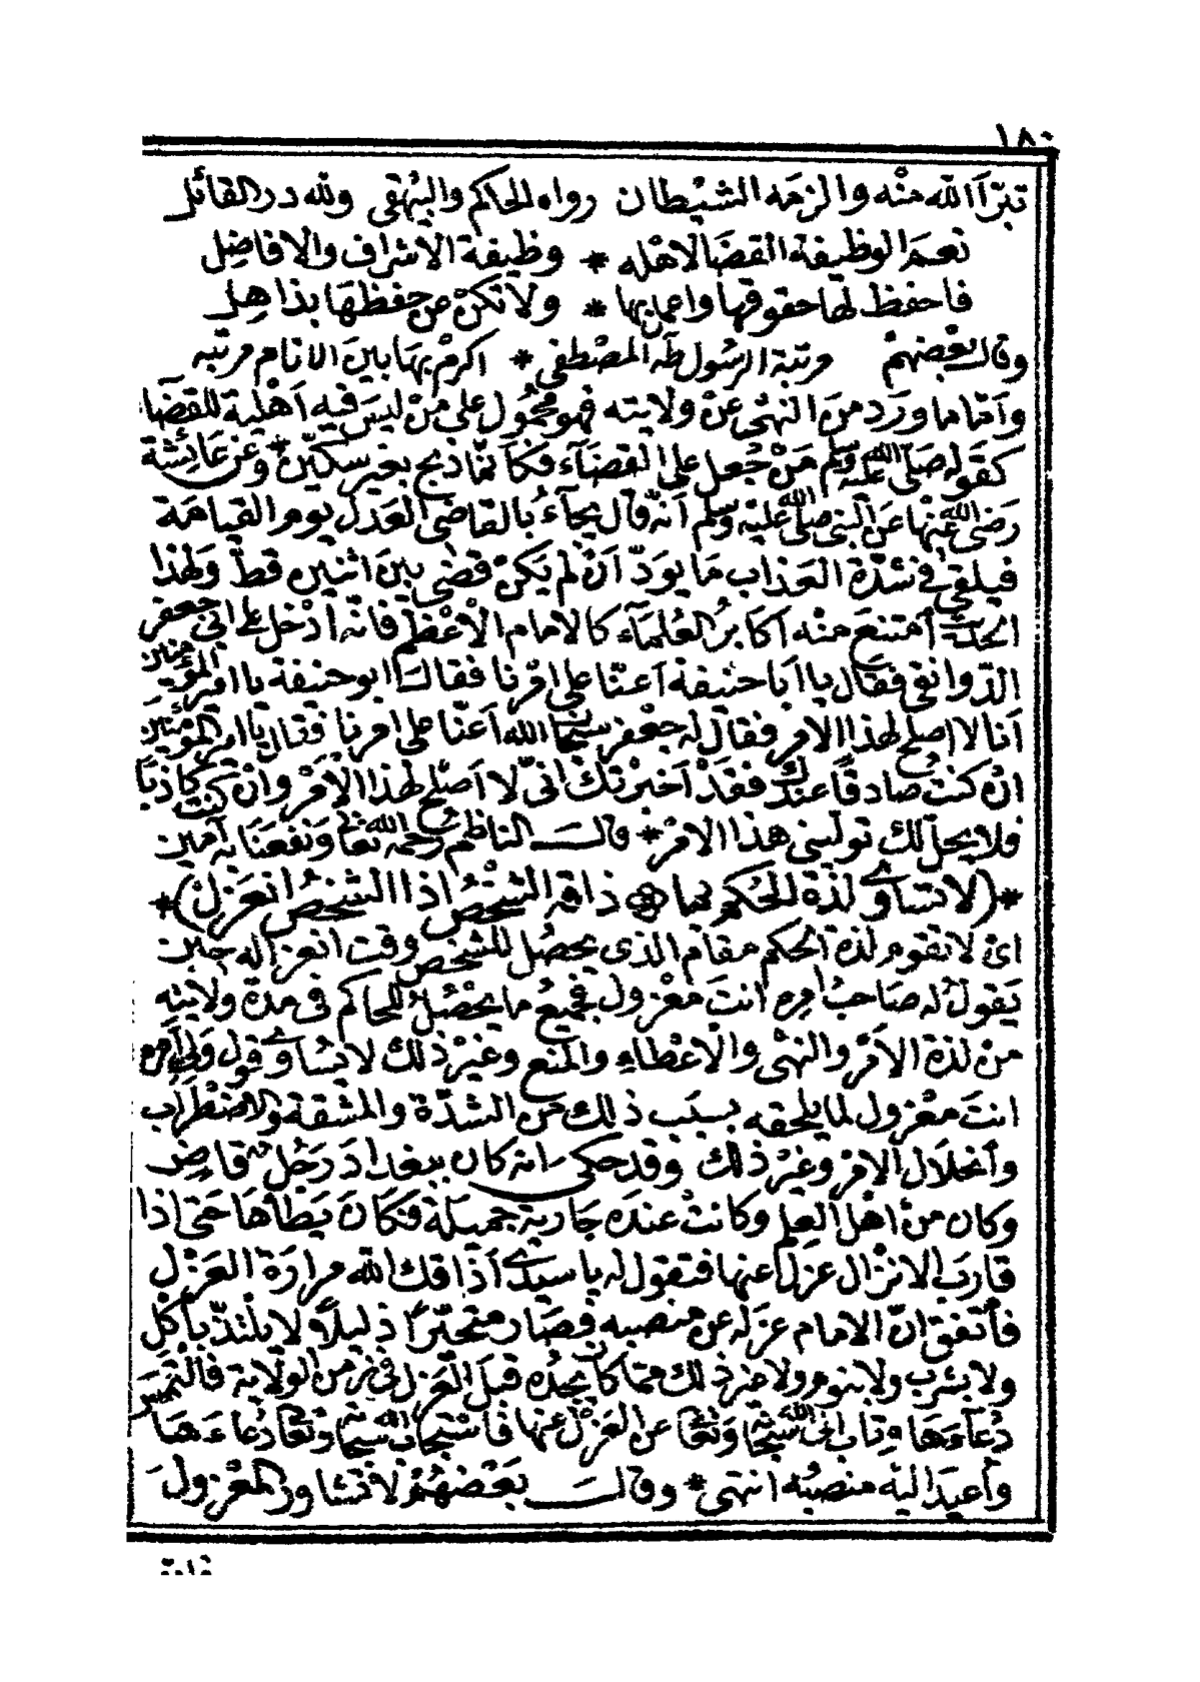 ١٨٠
تبرّأ الله منْه والزمَه الشيْطان رواه الحاكم والبيْهقي ولله در القائل
نعم الوظيفة القضا لاهْله * وظيفة الاشراف والافاضِل
فاحفظ لها حقوقها واعمل بها * ولا تكنْ عن حفظهَا بذاهِل
وقال بعْضهمْ مرتبة الرسُول طه المصْطفى * اكرمْ بهَا بينَ الانام مرتبه
وأمّا ما ورَد منَ النهْى عَنْ ولايته فهو محْمُول على مَنْ ليسَ فيهِ أهْلية للقضَاء
كقوله صَلى الله عليْه وسَلم مَنْ جُعل على القضَآء فكأنمّا ذبح بغير سكيّن * وعَن عَائِشة
رَضى الله عنْها عَن النبىّ صَلى الله عَليْه وسَلم أنّه قال يجَآءُ بالقاضى العَدل يوم القيامَة
فيلقى في شدّة العَذاب مَا يودّ أنْ لمْ يكنْ قضَى بينَ اثنين قطّ ولهذا
الحديث أمتنعَ منْه أكابرُ العُلمَآء كالامام الاعْظم فانّه أدْخل على ابى جعفر
الدّوانقى فقال يا أبا حنيفة أعنّا على امْرنا فقال ابو حنيفة يا امير المؤمنين
أنا لا اصلح لهذا الامر فقال له جعْفر سبحان الله أعنّا على امرنا فقال يا امير المؤمنين
ان كنت صادقًا عندك فقدْ أخبرْتك انىّ لا أصْلح لهذا الامْر وانْ كنت كاذبًا
فلا يحلّ لك توليني هذا الامْر * قال الناظم رحمه الله تعَالى ونفعَنا به آمين
*(لا تساوى لذة الحُكم بما ذاقه الشخْصُ اذا الشخصُ انعَزل)*
اىْ لا تقوم لذة الحكم مقام الذى يحصُل للشخص وقت انعزاله حين
يَقولُ له صَاحبُ امره انتَ معْزول فجميعُ ما يحْصُلُ للحاكم فى مدة ولايته
منْ لذة الأمْر والنهْى والاعْطاء والمنع وغيْر ذلك لا يسَاوى قول ولى أمره
انتَ معْزول لما يلحقه بسبَب ذلك مَن الشدّة والمشقة والاضْطرَاب
وأنحلال الامْر وغيْر ذلك وقد حكى انه كان ببغداد رَجُل قاض
وكان من أهْل العِلم وكانتْ عندَه جَارية جميلة فكان يَطأهَا حَتى اذا
قاربَ الانْزال عزل عنها فتقول له يا سيّدى أذاقك الله مرارَة العَزْل
فأتفق انّ الامام عزله عن منصبه فصَار متحيّرًا ذليلًا لا يلتذّ بأكل
ولا بشرب ولا بنوم ولا غير ذلك ممّا كان يجدُه قبلَ العَزل في زمن الولاية فالتمسَ
دُعآءَهَا وتاب الى الله سُبحَانه وتعَالى عن العَزْل عنها فاسْتجاب الله سُبحانه وتعَالى دُعاءَهَا
وأعيدَ اليْه منصبُه انتهى * وقال بعْضهُمْ لا تسَاوى المعْزولَ